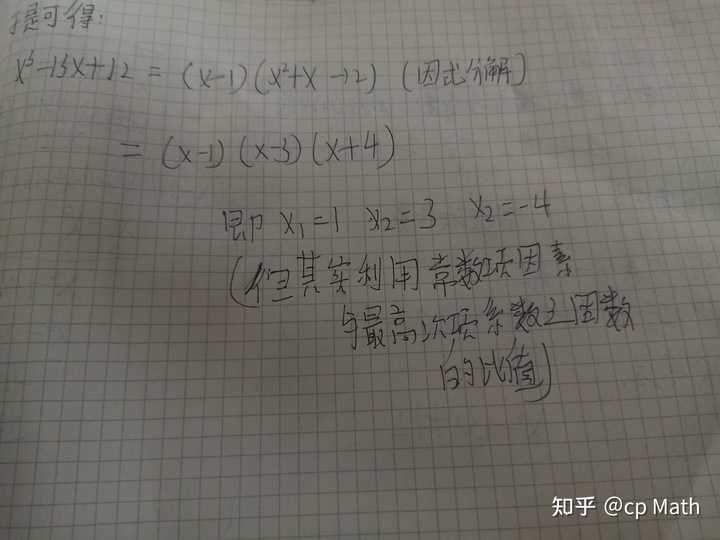 提可得:
x³-13x+12 = (x-1)(x²+x-12) (因式分解)
= (x-1)(x-3)(x+4)
即 x₁=1 x₂=3 x₂=-4
(但其实利用常数项因素
与最高次项系数之因数
的比值)
知乎 @cp Math